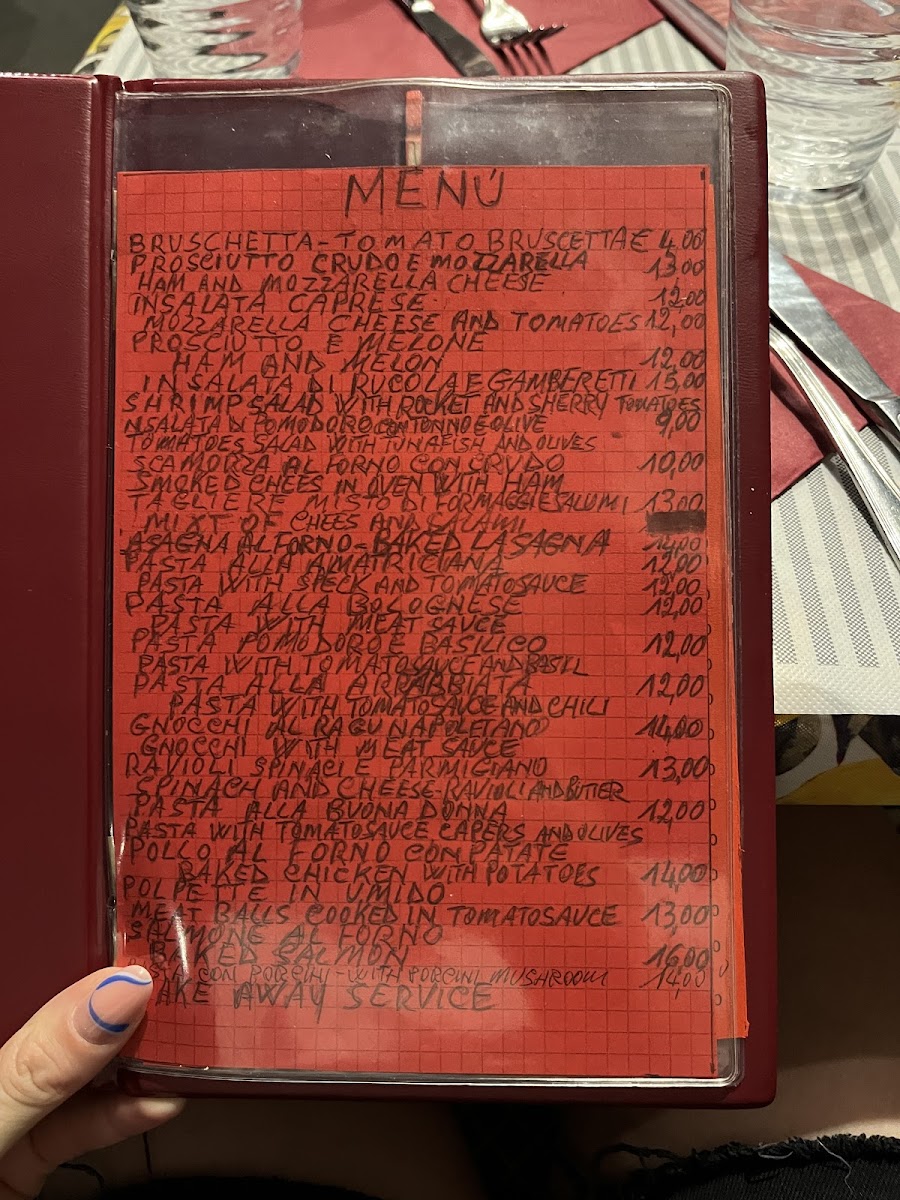 MENÚ
BRUSCHETTA-TOMATO BRUSCETTA € 4,00
PROSCIUTTO CRUDO E MOZZARELLA 13,00
HAM AND MOZZARELLA CHEESE
INSALATA CAPRESE 12,00
MOZZARELLA CHEESE AND TOMATOES 12,00
PROSCIUTTO E MELONE
HAM AND MELON 12,00
INSALATA DI RUCOLA E GAMBERETTI 15,00
SHRIMP SALAD WITH ROCKET AND SHERRY TOMATOES
INSALATA DI POMODORO CON TONNO E OLIVE 9,00
TOMATOES SALAD WITH TUNAFISH AND OLIVES
SCAMORZA AL FORNO CON CRUDO 10,00
SMOKED CHEES IN OVEN WITH HAM
TAGLIERE MISTO DI FORMAGGI E SALUMI 13,00
MIXT OF CHEES AND SALAMI
LASAGNA AL FORNO-BAKED LASAGNA 14,00
PASTA ALLA AMATRICIANA 12,00
PASTA WITH SPECK AND TOMATOSAUCE 12,00
PASTA ALLA BOLOGNESE 12,00
PASTA WITH MEAT SAUCE
PASTA POMODORO E BASILICO 12,00
PASTA WITH TOMATOSAUCE AND BASIL
PASTA ALLA ARRABBIATA 12,00
PASTA WITH TOMATOSAUCE AND CHILI
GNOCCHI AL RAGU NAPOLETANO 14,00
GNOCCHI WITH MEAT SAUCE
RAVIOLI SPINACI E PARMIGIANO 13,00
SPINACH AND CHEESE-RAVIOLI AND BUTTER
PASTA ALLA BUONA DONNA 12,00
PASTA WITH TOMATOSAUCE CAPERS AND OLIVES
POLLO AL FORNO CON PATATE
BAKED CHICKEN WITH POTATOES 14,00
POLPETTE IN UMIDO
MEAT BALLS COOKED IN TOMATOSAUCE 13,00
SALMONE AL FORNO
BAKED SALMON 16,00
PASTA CON PORCINI-WITH PORCINI MUSHROOM 14,00
TAKE AWAY SERVICE